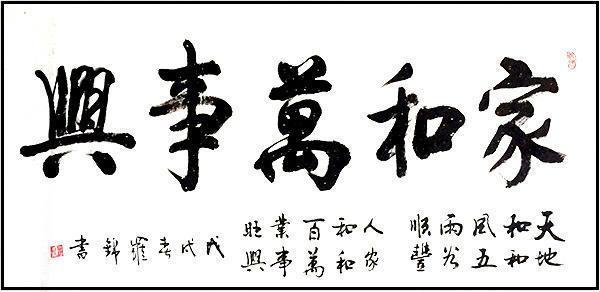 家和萬事興
天和风雨順
地和五谷豐
人和百業旺
家和萬事興
戊戌春羅錦書